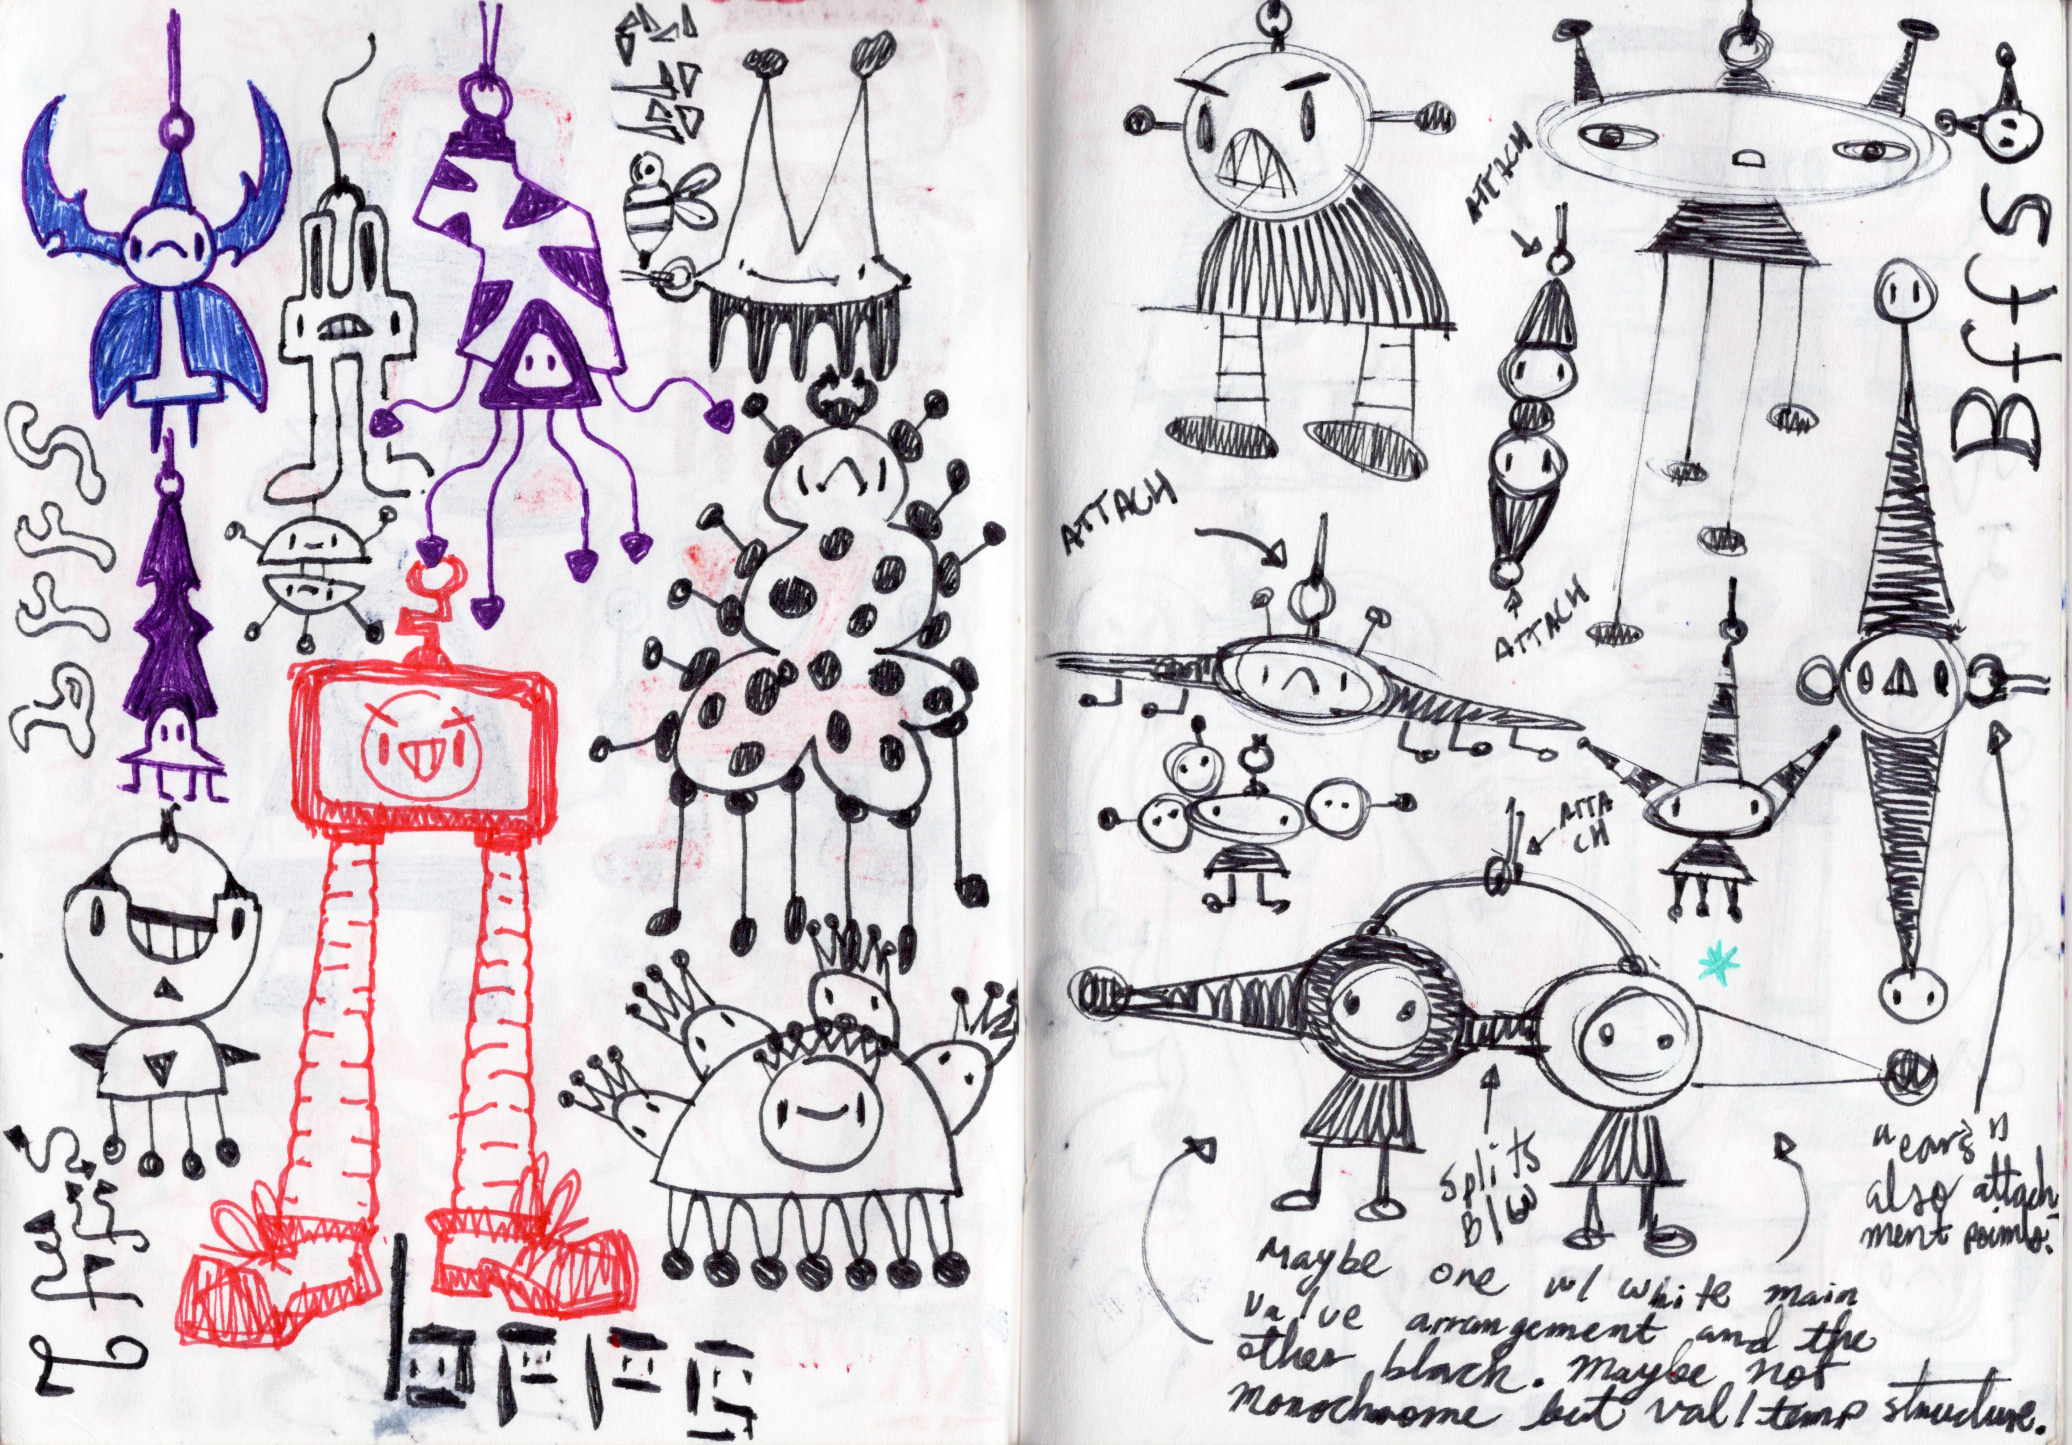 Bffs
ATTACH
ATTACH
ATTACH
ATTA
CH
Splits
B/W
"ears"
also attach-
ment points.
Maybe one w/ white main
value arrangement and the
other black. Maybe not
monochrome but val/temp structure.
bffs
bffs